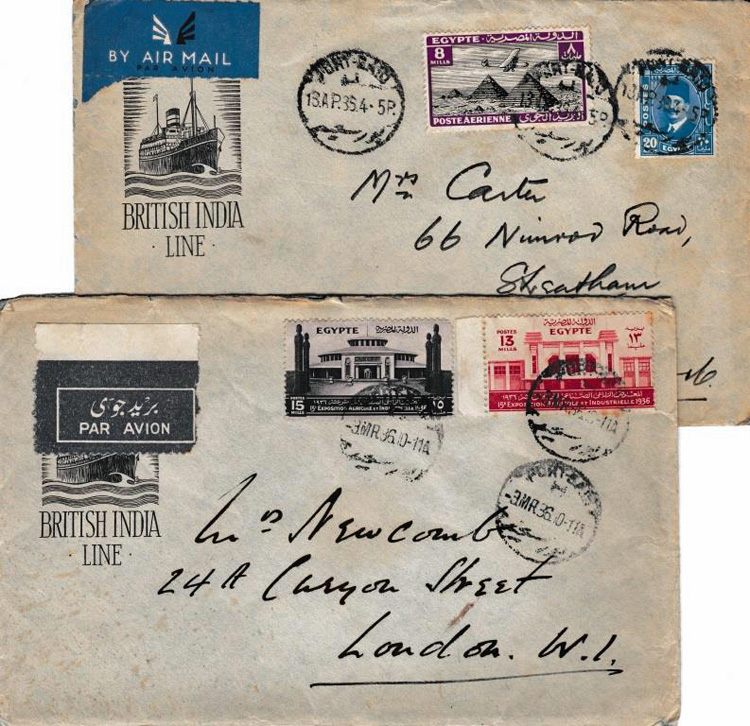 BY AIR MAIL
PAR AVION
BRITISH INDIA
· LINE ·
PORT-SAID
13.AP.36.4-5P
EGYPTE الدولة المصرية
8 ٨
MILLS مليمات
POSTE AERIENNE البريد الجوى
POSTES
20
EGYPTE
Mrs Carter
66 Nimrod Road,
Streatham
بريد جوى
PAR AVION
BRITISH INDIA
· LINE ·
EGYPTE الدولة المصرية
POSTES
15 ١٥
MILLS
١٩٣٦
15E EXPOSITION AGRICOLE ET INDUSTRIELLE 1936
الدولة المصرية
EGYPTE
POSTES
13 ١٣
MILLS
١٩٣٦
15E EXPOSITION AGRICOLE ET INDUSTRIELLE 1936
-9MR.36.10-11A
PORT-SAID
-9MR.36.10-11A
Mrs Newcomb
24A Curzon Street
London. W.1.